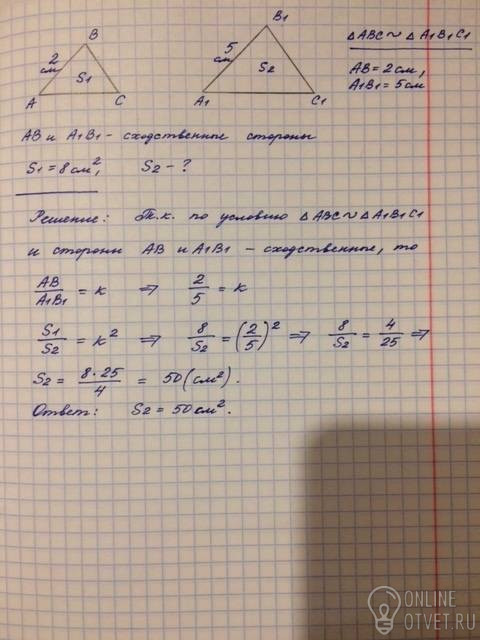 B
2 см
S1
A C
B1
5 см
S2
A1 C1
△ABC ~ △A1B1C1
AB = 2 см,
A1B1 = 5 см
AB и A1B1 - сходственные стороны
S1 = 8 см², S2 - ?
Решение: Т.к. по условию △ABC ~ △A1B1C1
и стороны AB и A1B1 - сходственные, то
AB/A1B1 = k ⇒ 2/5 = k
S1/S2 = k² ⇒ 8/S2 = (2/5)² ⇒ 8/S2 = 4/25 ⇒
S2 = 8·25/4 = 50 (см²).
Ответ: S2 = 50 см².
ONLINE
OTVET.RU